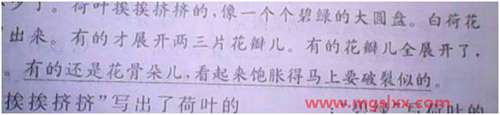 少了。荷叶挨挨挤挤的,像一个个碧绿的大圆盘。白荷花
出来。有的才展开两三片花瓣儿。有的花瓣儿全展开了,
。有的还是花骨朵儿,看起来饱胀得马上要破裂似的。
挨挨挤挤”写出了荷叶的
www.mgslxx.com